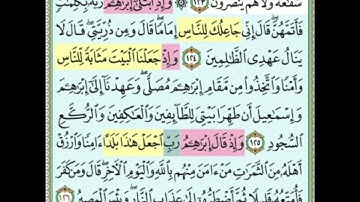 شَفَٰعَةٌ وَلَا هُمْ يُنصَرُونَ ١٢٣ وَإِذِ ٱبْتَلَىٰٓ إِبْرَٰهِـۧمَ رَبُّهُۥ بِكَلِمَٰتٍ
فَأَتَمَّهُنَّ قَالَ إِنِّى جَاعِلُكَ لِلنَّاسِ إِمَامًا قَالَ وَمِن ذُرِّيَّتِى قَالَ لَا
يَنَالُ عَهْدِى ٱلظَّٰلِمِينَ ١٢٤ وَإِذْ جَعَلْنَا ٱلْبَيْتَ مَثَابَةً لِّلنَّاسِ
وَأَمْنًا وَٱتَّخِذُوا۟ مِن مَّقَامِ إِبْرَٰهِـۧمَ مُصَلًّى وَعَهِدْنَآ إِلَىٰٓ إِبْرَٰهِـۧمَ
وَإِسْمَٰعِيلَ أَن طَهِّرَا بَيْتِىَ لِلطَّآئِفِينَ وَٱلْعَٰكِفِينَ وَٱلرُّكَّعِ
ٱلسُّجُودِ ١٢٥ وَإِذْ قَالَ إِبْرَٰهِـۧمُ رَبِّ ٱجْعَلْ هَٰذَا بَلَدًا ءَامِنًا وَٱرْزُقْ
أَهْلَهُۥ مِنَ ٱلثَّمَرَٰتِ مَنْ ءَامَنَ مِنْهُم بِٱللَّهِ وَٱلْيَوْمِ ٱلْـَٔاخِرِ قَالَ وَمَن كَفَرَ
فَأُمَتِّعُهُۥ قَلِيلًا ثُمَّ أَضْطَرُّهُۥٓ إِلَىٰ عَذَابِ ٱلنَّارِ وَبِئْسَ ٱلْمَصِيرُ ١٢٦